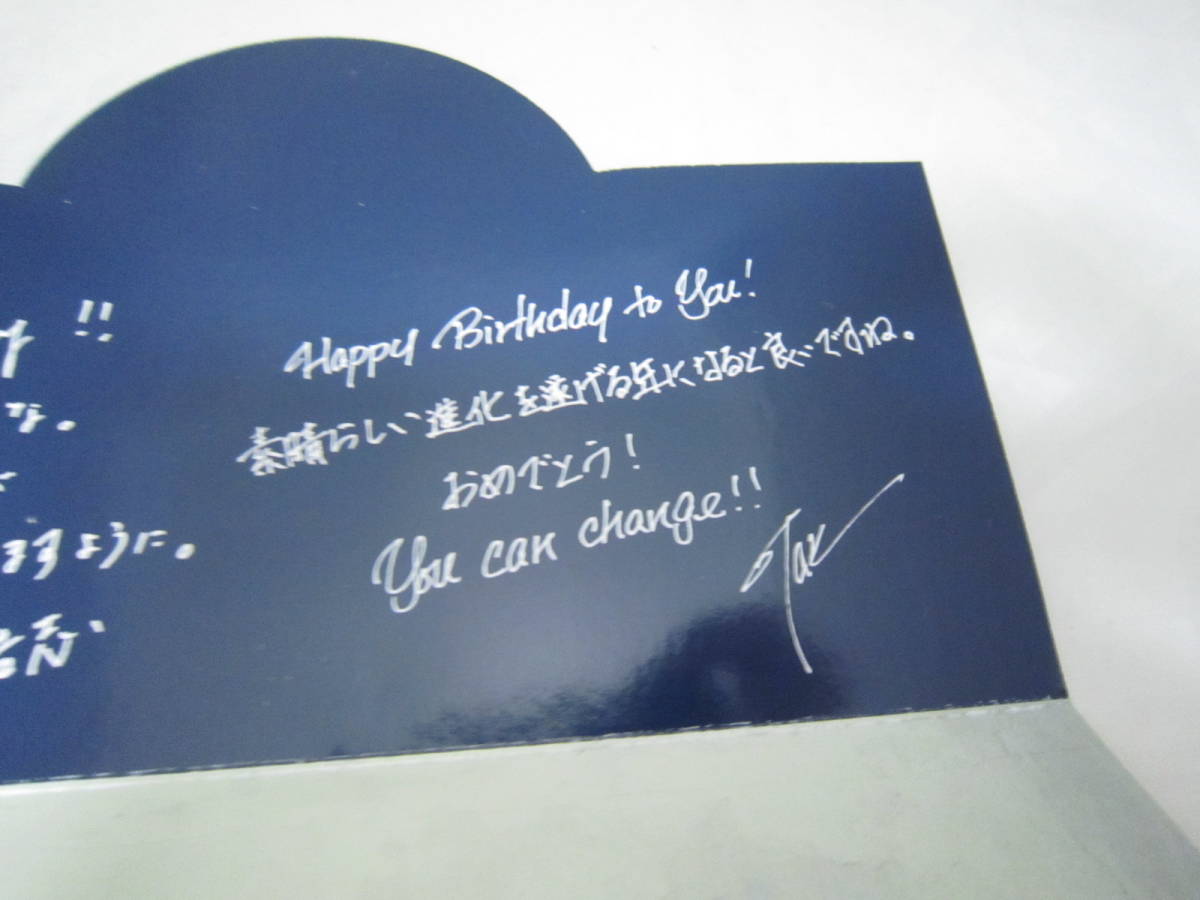 !!
な。
ますように。
Happy Birthday to You!
素晴らしい進化を遂げる年になると良いですね。
おめでとう!
You can change!!
Tak